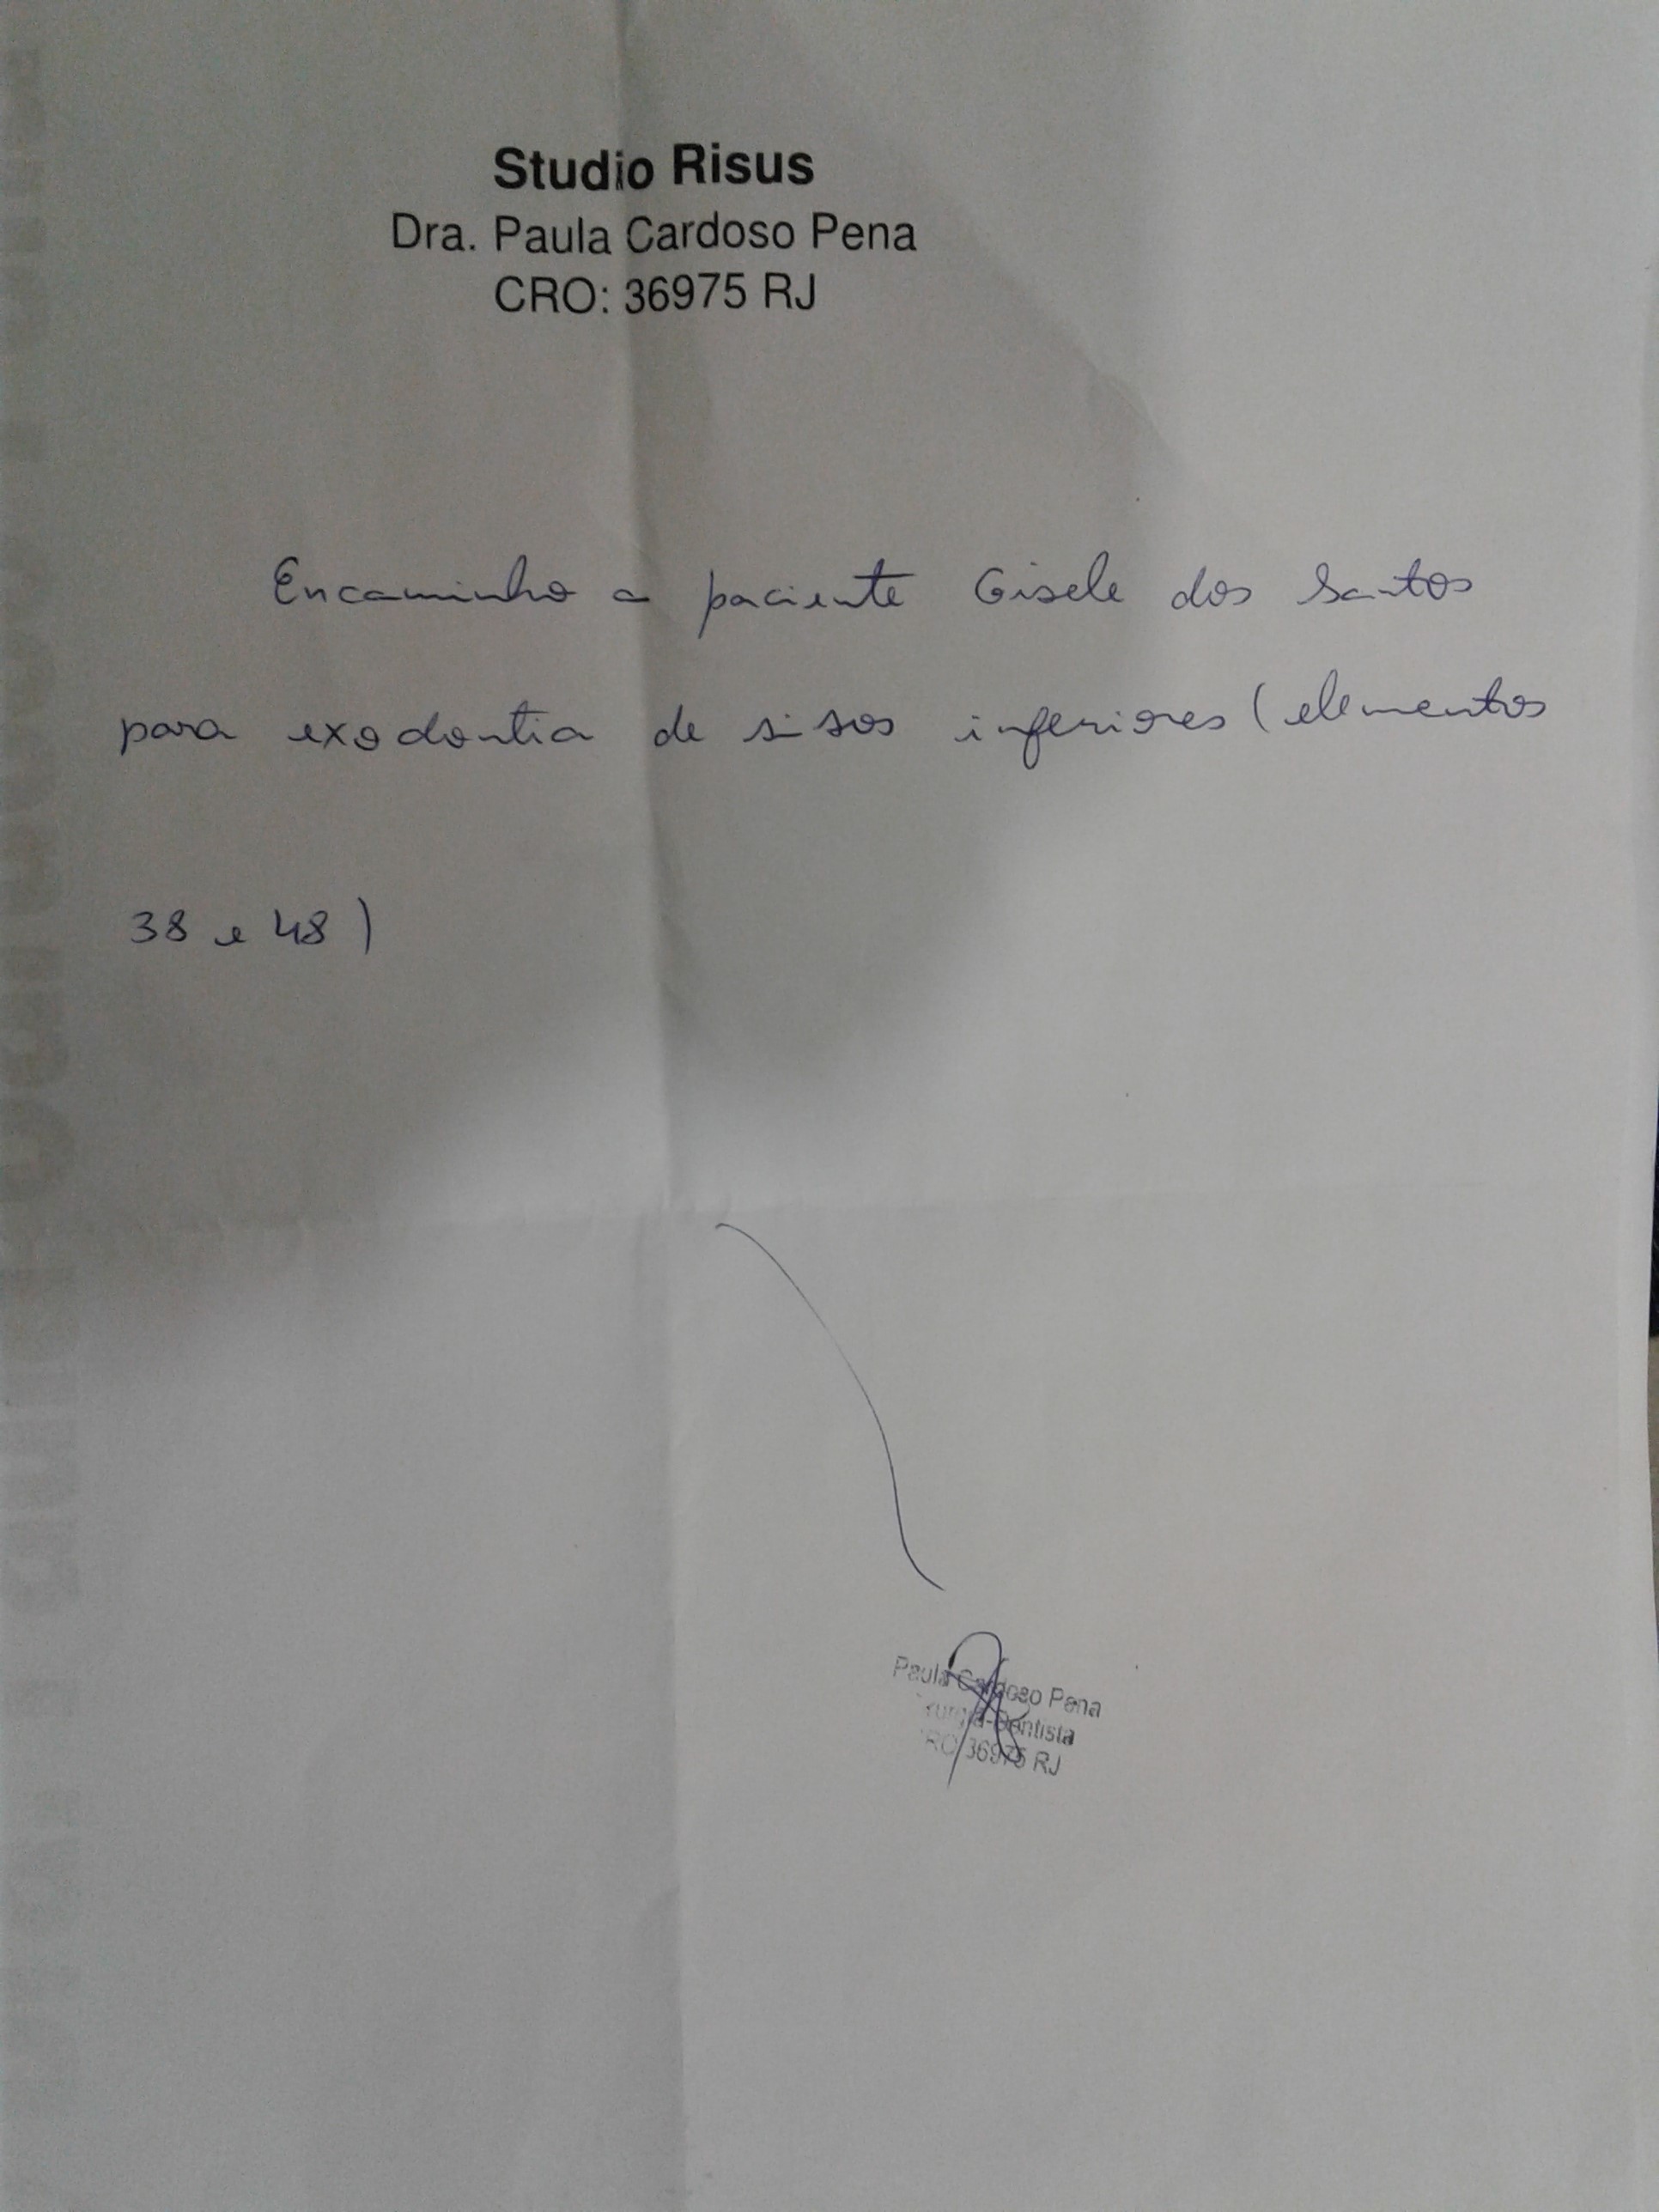 Studio Risus
Dra. Paula Cardoso Pena
CRO: 36975 RJ
Encaminho a paciente Gisele dos Santos
para exodontia de sisos inferiores (elementos
38 e 48)
Paula Cardoso Pena
-Dentista
36975 RJ